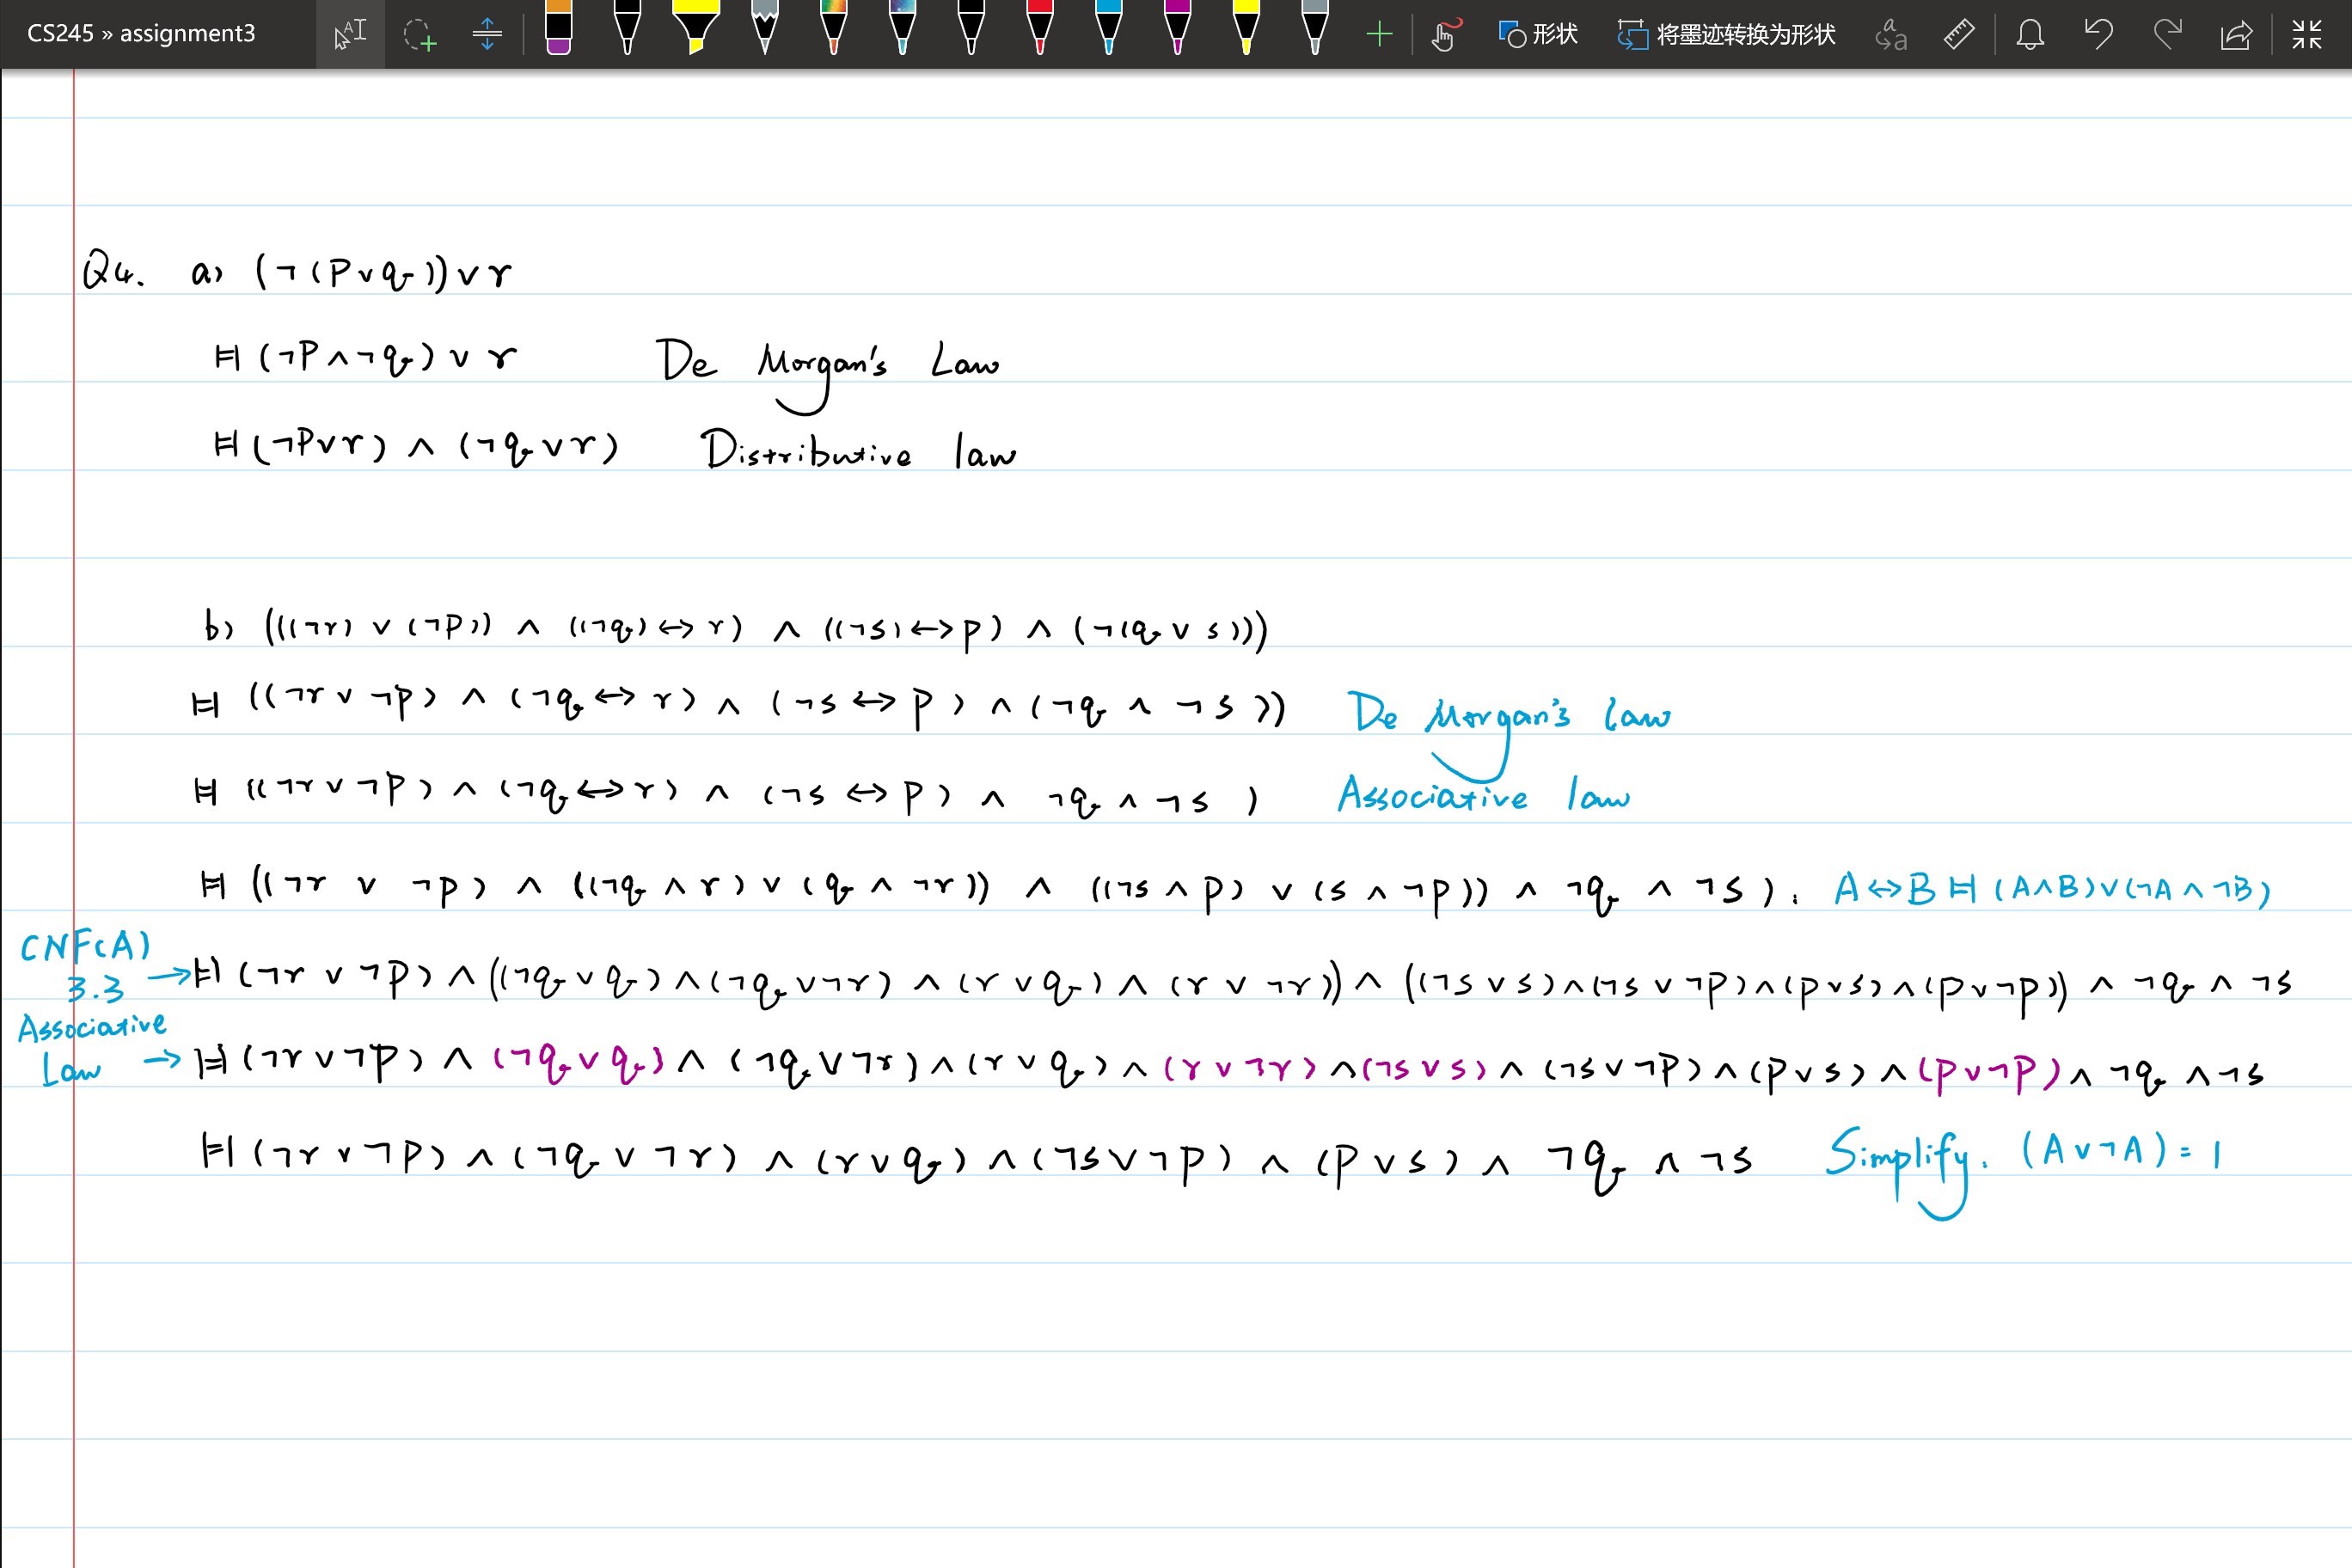 CS245 » assignment3
形状
将墨迹转换为形状
Q4. a) (¬(p∨q))∨r
⊨⫤ (¬p∧¬q)∨r De Morgan's Law
⊨⫤ (¬p∨r) ∧ (¬q∨r) Distributive law
b) (((¬r) ∨ (¬p)) ∧ ((¬q)↔r) ∧ ((¬s)↔p) ∧ (¬(q∨s)))
⊨⫤ ((¬r ∨ ¬p) ∧ (¬q↔r) ∧ (¬s↔p) ∧ (¬q ∧ ¬s)) De Morgan's law
⊨⫤ ((¬r∨¬p) ∧ (¬q↔r) ∧ (¬s↔p) ∧ ¬q ∧ ¬s ) Associative law
⊨⫤ ((¬r ∨ ¬p) ∧ ((¬q∧r)∨(q∧¬r)) ∧ ((¬s∧p) ∨ (s∧¬p)) ∧ ¬q ∧ ¬s). A↔B ⊨⫤ (A∧B)∨(¬A∧¬B)
CNF(A) 3.3 → ⊨⫤ (¬r ∨ ¬p) ∧ ((¬q∨q)∧(¬q∨¬r) ∧ (r∨q) ∧ (r∨¬r)) ∧ ((¬s∨s)∧(¬s∨¬p)∧(p∨s)∧(p∨¬p)) ∧ ¬q ∧ ¬s
Associative Law → ⊨⫤ (¬r∨¬p) ∧ (¬q∨q) ∧ (¬q∨¬r)∧(r∨q) ∧ (r∨¬r) ∧(¬s∨s) ∧ (¬s∨¬p)∧(p∨s) ∧(p∨¬p)∧ ¬q ∧¬s
⊨⫤ (¬r∨¬p) ∧ (¬q∨¬r) ∧ (r∨q) ∧ (¬s∨¬p) ∧ (p∨s) ∧ ¬q ∧¬s Simplify. (A∨¬A) = 1